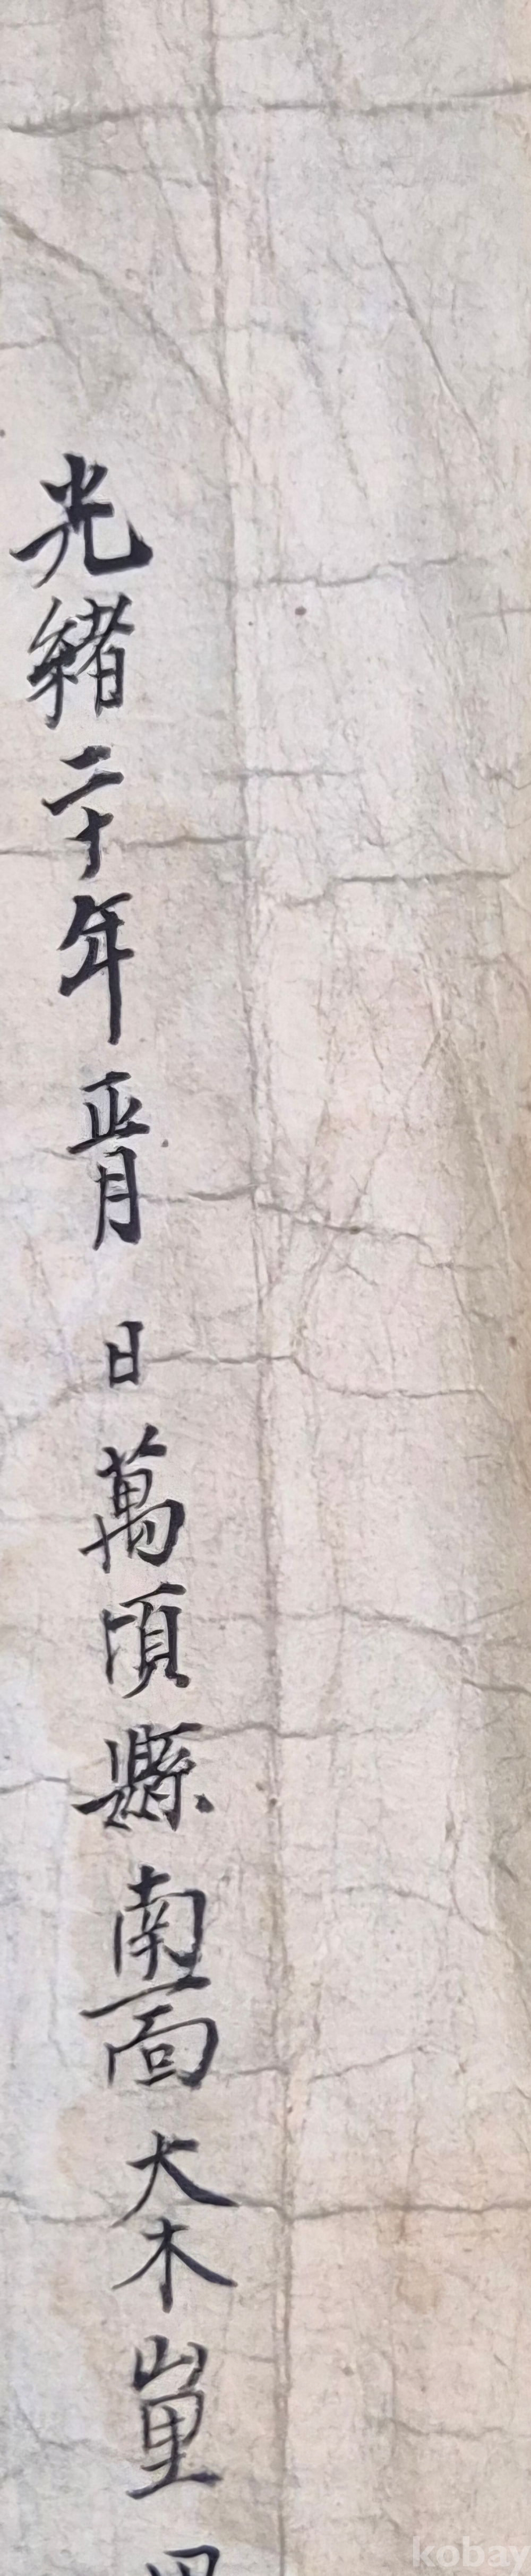 光緒二十年正月 日萬頃縣南面大木山里
kobay